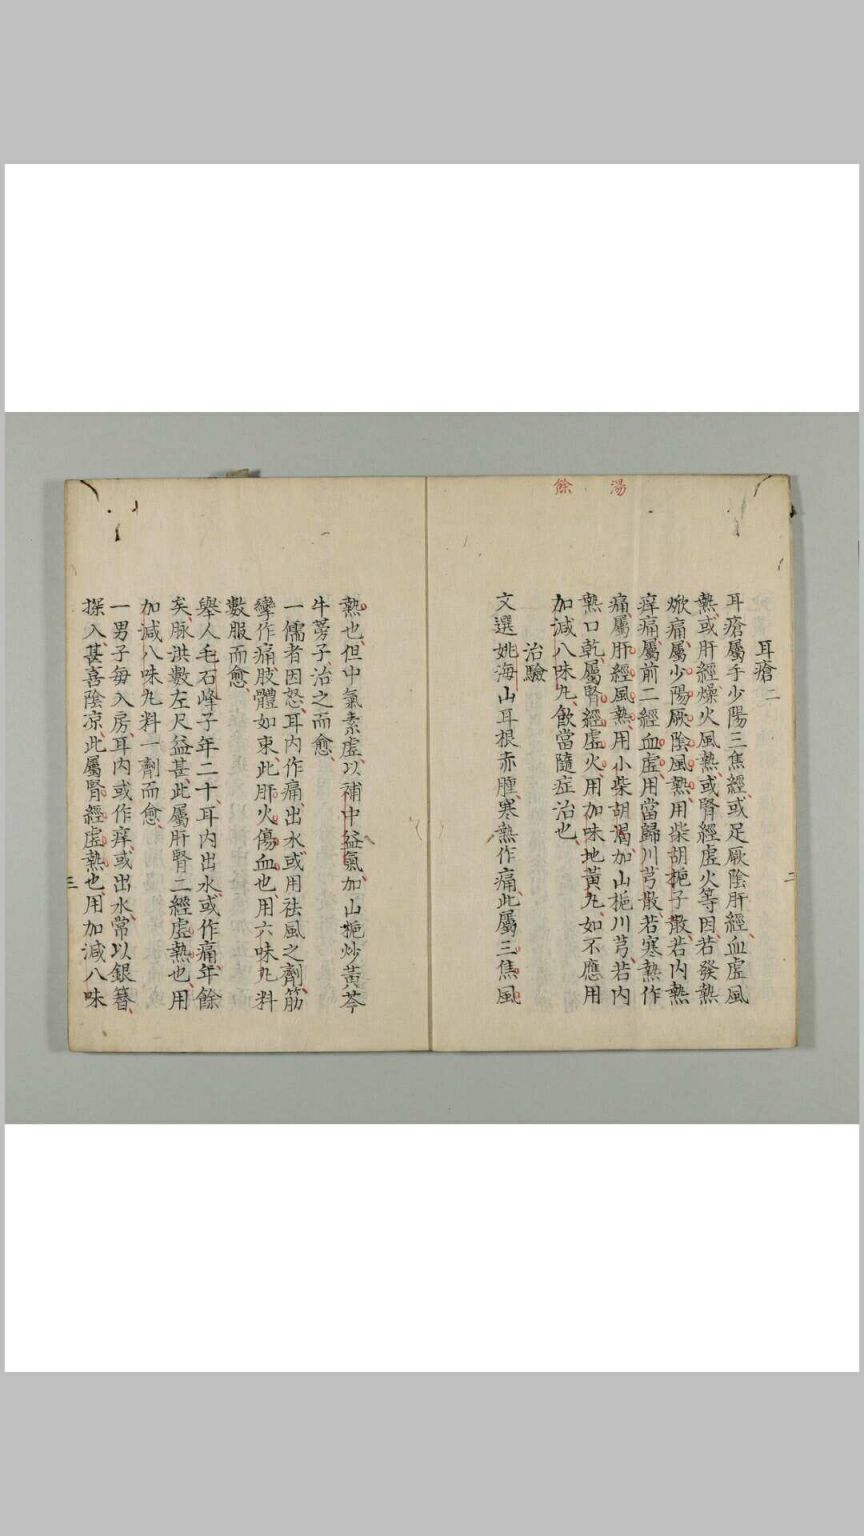 湯
餘
耳瘡二
耳瘡屬手少陽三焦經或足厥陰肝經血虛風
熱或肝經燥火風熱或腎經虛火等因若發熱
焮痛屬少陽厥陰風熱用柴胡梔子散若內熱
痒痛屬前二經血虛用當歸川芎散若寒熱作
痛屬肝經風熱用小柴胡湯加山梔川芎若內
熱口乾屬腎經虛火用加味地黃丸如不應用
加減八味丸飲當隨症治也
治驗
文選姚海山耳根赤腫寒熱作痛此屬三焦風
二
熱也但中氣素虛以補中益氣加山梔炒黃芩
牛蒡子治之而愈
一儒者因怒耳內作痛出水或用祛風之劑筋
攣作痛肢體如束此肝火傷血也用六味丸料
數服而愈
舉人毛石峰子年二十耳內出水或作痛年餘
矣脉洪數左尺益甚此屬肝腎二經虛熱也用
加減八味丸料一劑而愈
一男子每入房耳內或作痒或出水常以銀簪
探入甚喜陰凉此屬腎經虛熱也用加減八味
三